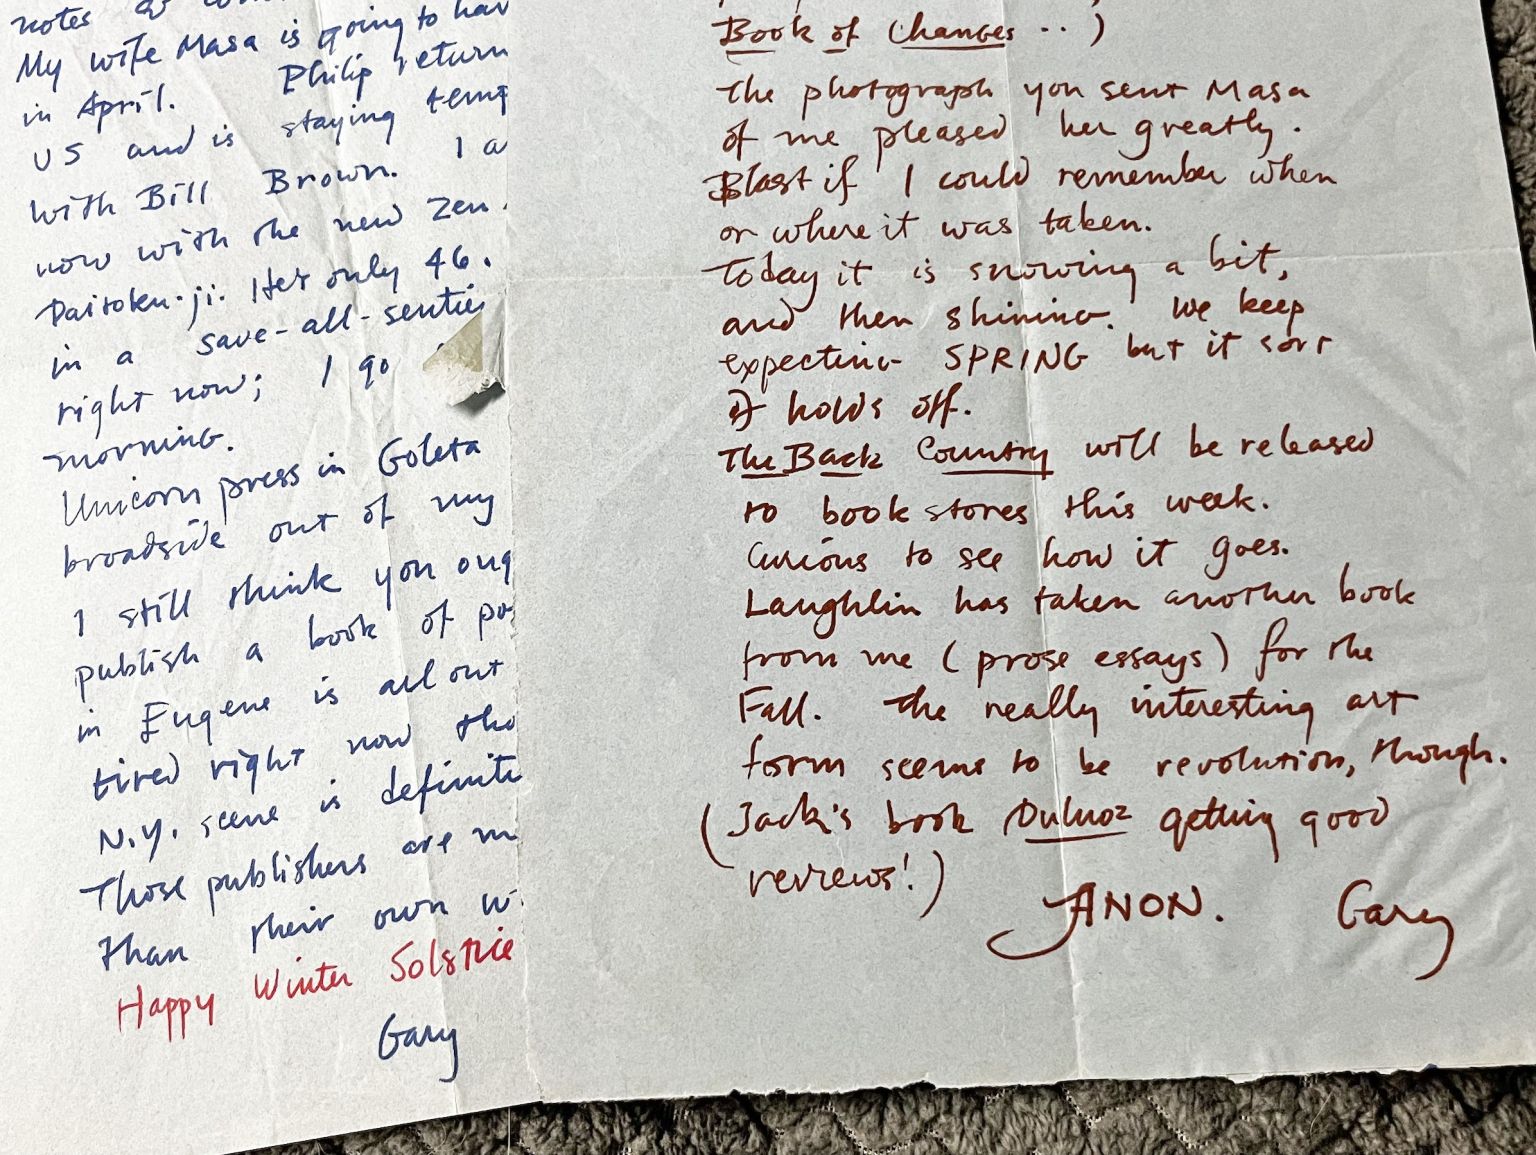 notes
My wife Masa is going to hav
in April. Philip return
US and is staying temp
with Bill Brown. I a
now with the new Zen
Daitoku-ji. He's only 46.
in a save-all-sentie
right now; I go
morning.
Unicorn press in Goleta
broadside out of my
I still think you oug
publish a book of po
in Eugene is all out
tired right now tho
N.Y. scene is definite
Those publishers are m
than their own w
Happy Winter Solstice
Gary
Book of Changes . . )
The photograph you sent Masa
of me pleased her greatly.
Blast if I could remember when
or where it was taken.
Today it is snowing a bit,
and then shining. We keep
expecting SPRING but it sort
of holds off.
The Back Country will be released
to book stores this week.
Curious to see how it goes.
Laughlin has taken another book
from me (prose essays) for the
Fall. The really interesting art
form seems to be revolution, though.
(Jack's book Duluoz getting good
reviews!)
ANON. Gary